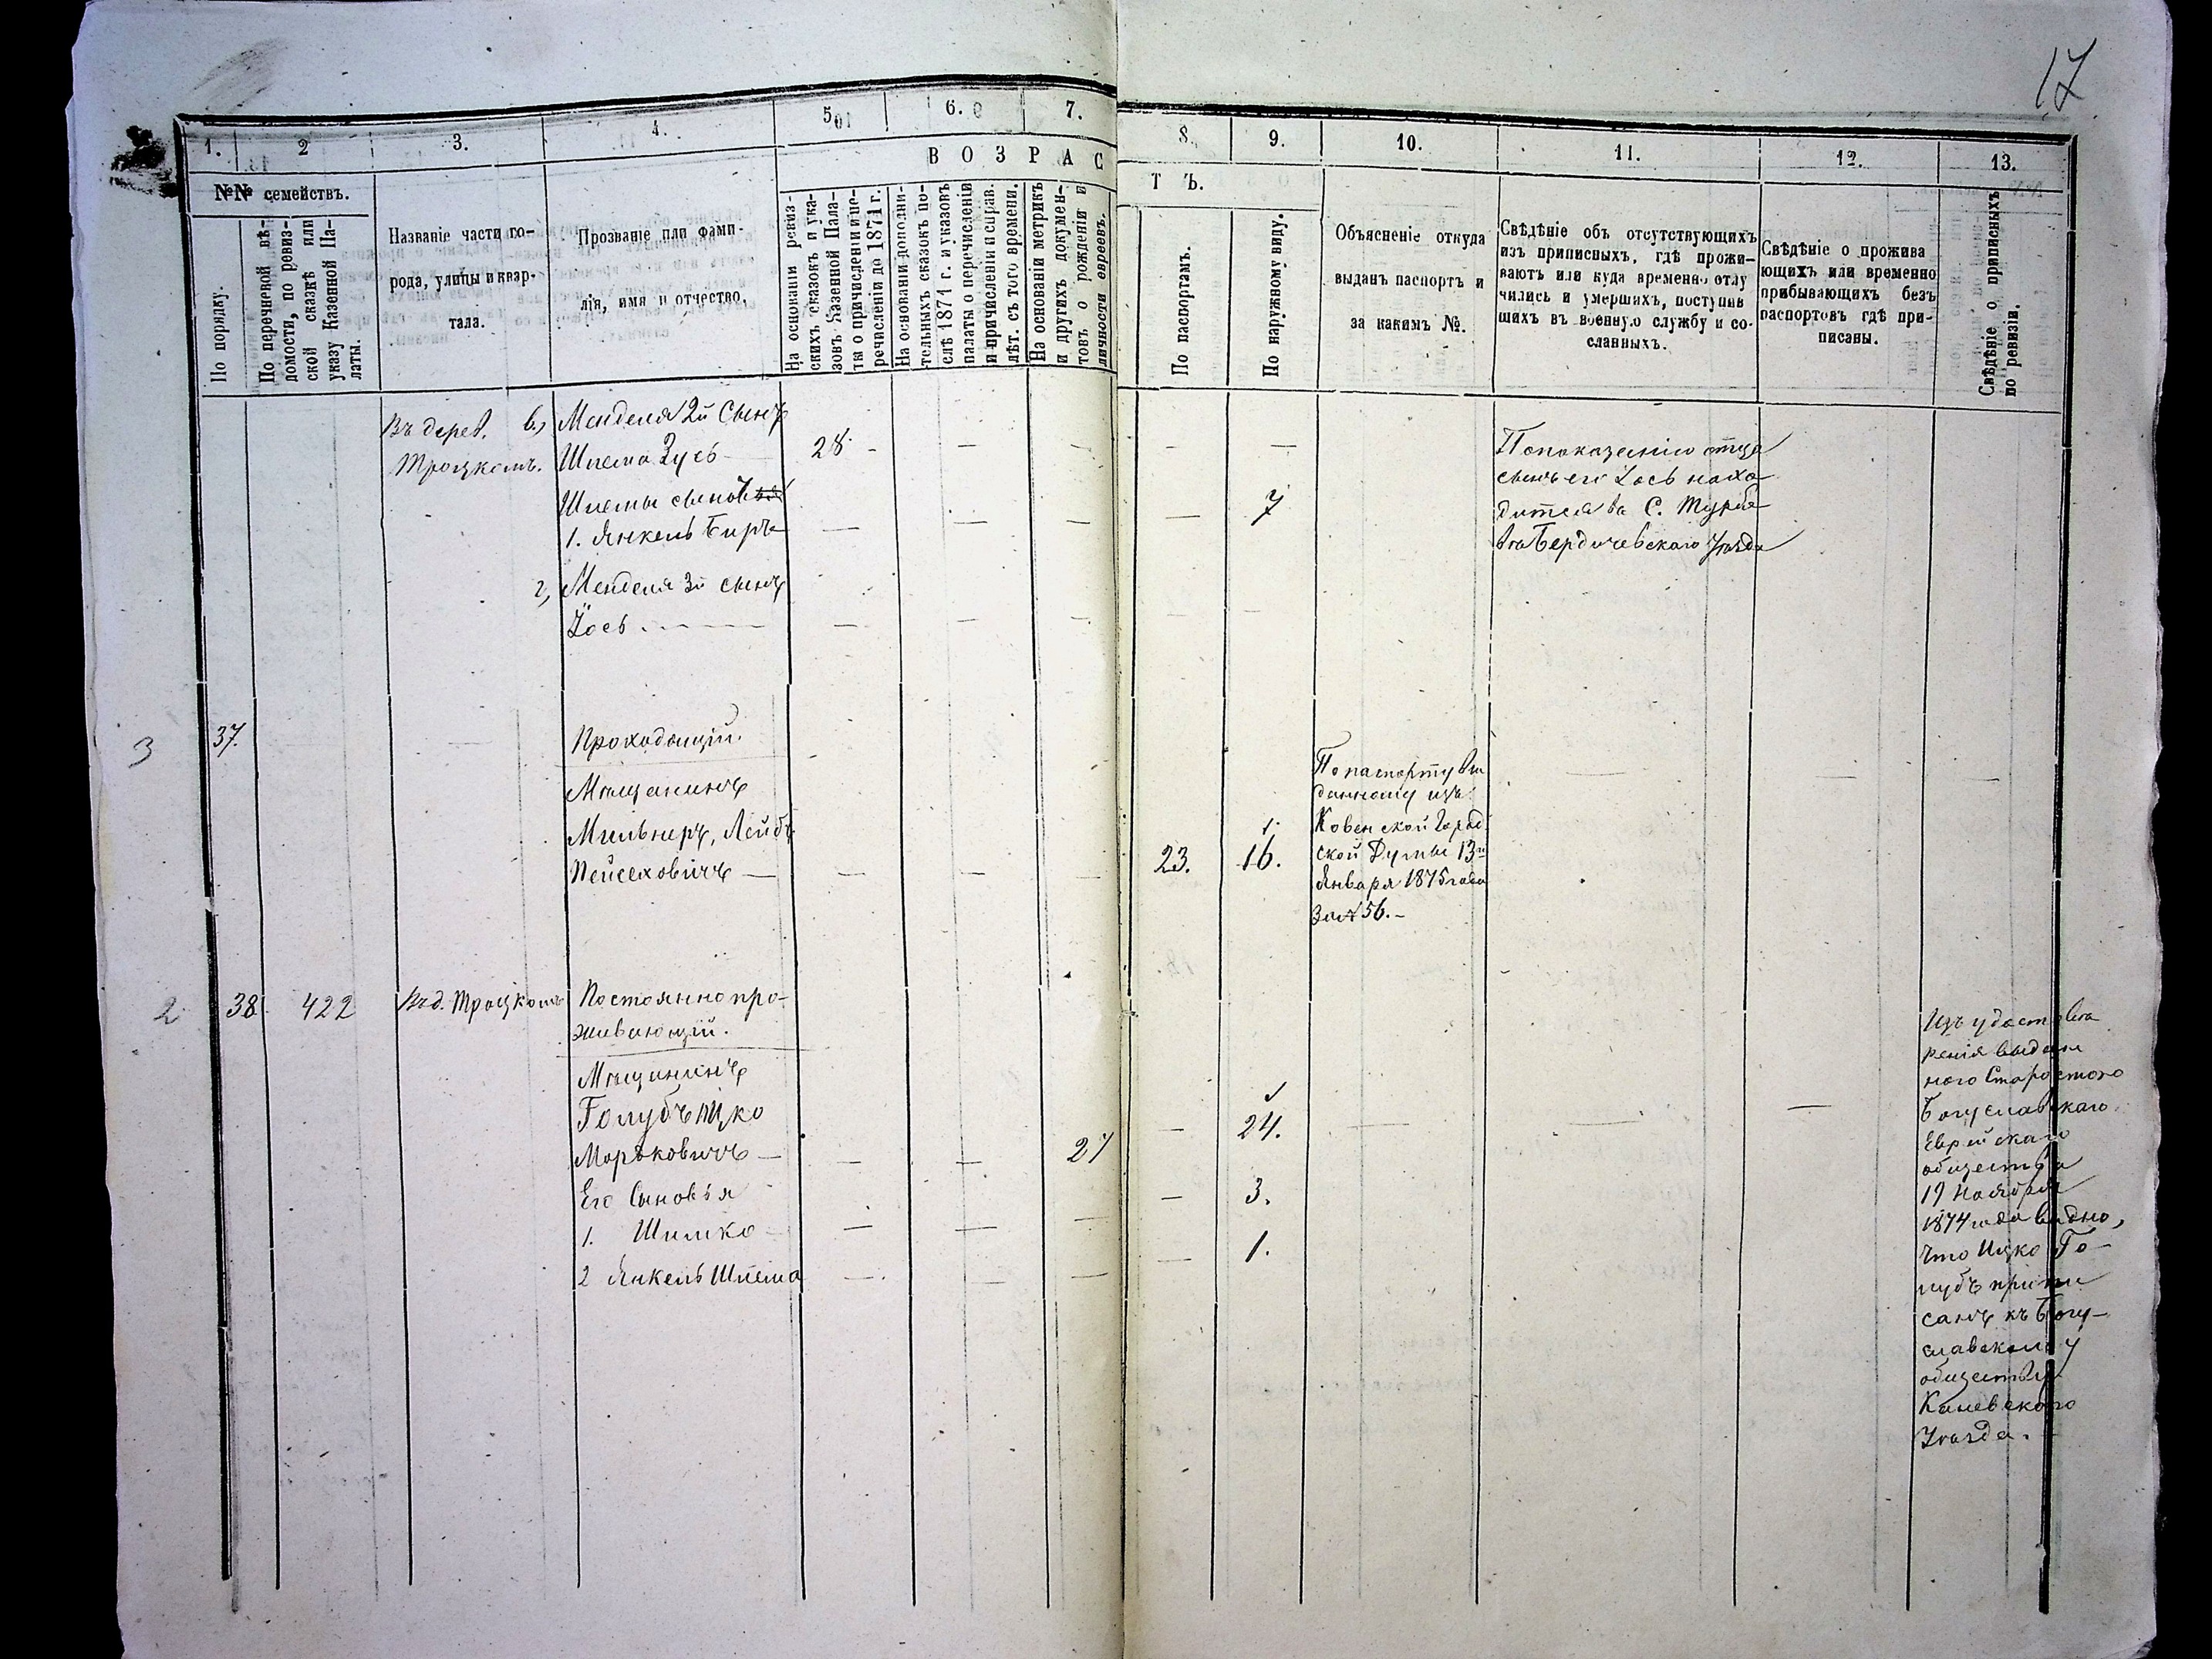 17
1. 2 3. 4. 5 6. 7. 8. 9. 10. 11. 12. 13.
В О З Р А С Т Ъ.
№№ семействъ.
По порядку.
По перечневой вѣ-
домости, по ревиз-
ской сказкѣ или
указу Казенной Па-
латы.
Названіе части го-
рода, улицы и квар-
тала.
Прозваніе или фами-
лія, имя и отчество.
На основаніи ревиз-
скихъ сказокъ и ука-
зовъ Казенной Пала-
ты о причисленіи и пе-
речисленіи до 1871 г.
На основаніи дополни-
тельныхъ сказокъ по-
слѣ 1871 г. и указовъ
палаты о перечисленіи
и причисленіи и справ.
лѣт. съ того времени.
На основаніи метрикъ
и другихъ докумен-
товъ о рожденіи и
личности евреевъ.
По паспортамъ.
По наружному виду.
Объясненіе откуда
выданъ паспортъ и
за какимъ №.
Свѣдѣніе объ отсутствующихъ
изъ приписныхъ, гдѣ прожи-
ваютъ или куда временно отлу
чились и умершихъ, поступив
шихъ въ военную службу и со-
сланныхъ.
Свѣдѣніе о прожива
ющихъ или временно
прибывающихъ безъ
паспортовъ гдѣ при-
писаны.
Свѣдѣніе о приписныхъ
по ревизіи.
Въ дерев.
Троцкомъ.
в, Менделя 2й Сынъ
Шлема Зусь 28 - — — — —
Шлемы сынов
1. Янкель Беръ — — — — 7
г, Менделя 3й сынъ
Іось — — — — —
По показанію отца
сынъ его Іось нахо
дится въ С. Турбо
вѣ Бердичевскаго Уѣзда
3 37. — Проходящій.
Мѣщанинъ
Мильнеръ, Лейбъ
Пейсеховичъ — — — — 23. 16.
По паспорту вы
данному изъ
Ковенской Город
ской Думы 13го
Января 1875 года
за № 56. -
— — —
2 38. 422 Въ д. Троцкомъ Постоянно про-
живающій.
Мѣщанинъ
Голубъ Ицко
Морьковичъ — — — 27 — 24. — — —
Его Сыновья
1. Шимко — — — — 3.
2 Янкель Шлема — — — — 1.
Изъ удостовѣ
ренія выдан
наго Старостою
Богуславскаго
Еврейскаго
общества
19 Ноября
1874 года видно,
что Ицко Го-
лубъ припи
санъ къ Богу-
славскому
обществу
Каневскаго
Уѣзда.